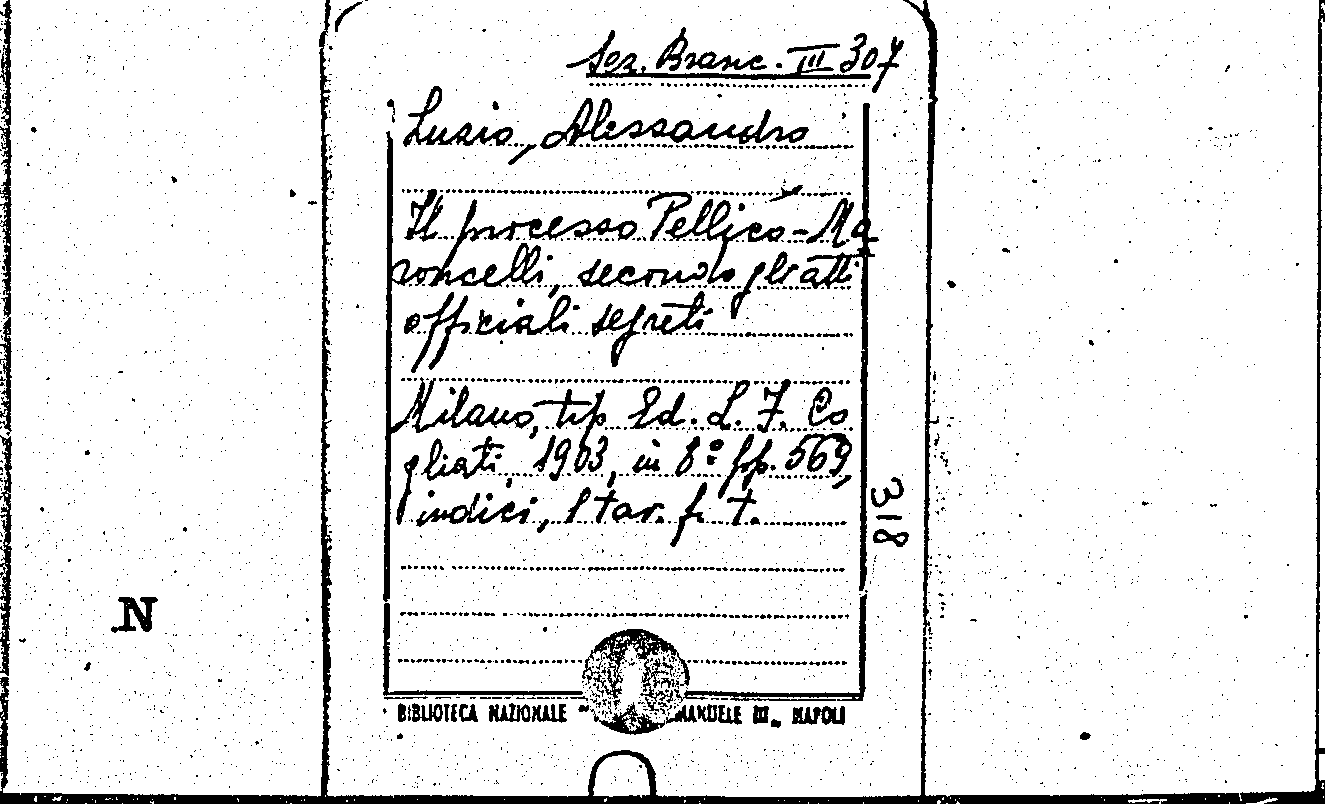 Sez. Branc. III 307
Luzio, Alessandro
Il processo Pellico-Ma
roncelli, secondo gli atti
officiali segreti
Milano, tip. Ed. L. F. Co
gliati, 1903, in 8° pp. 569,
indici, 1 tav. f. t.
318
N
BIBLIOTECA NAZIONALE " MANUELE III„ NAPOLI